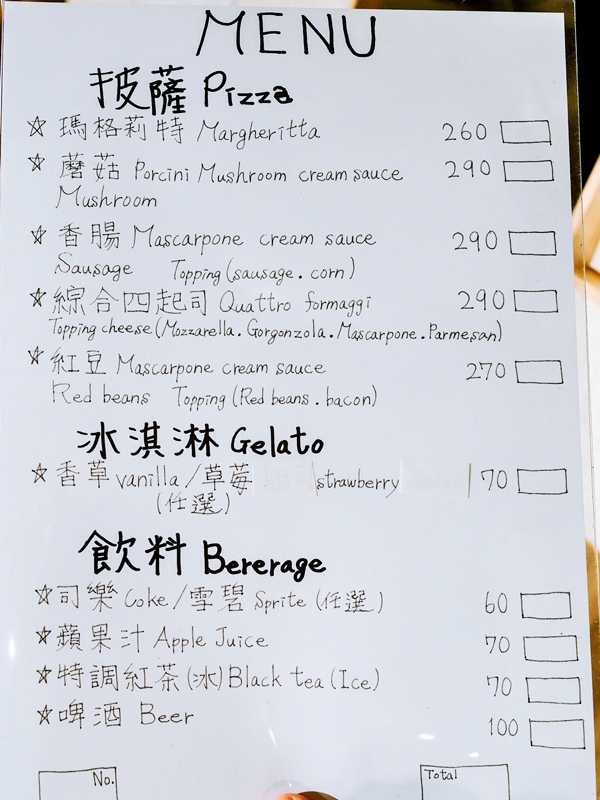 MENU
披薩 Pizza
☆ 瑪格莉特 Margheritta 260
☆ 蘑菇 Porcini Mushroom cream sauce 290
Mushroom
☆ 香腸 Mascarpone cream sauce 290
Sausage Topping (sausage . corn)
☆ 綜合四起司 Quattro formaggi 290
Topping cheese (Mozzarella . Gorgonzola . Mascarpone . Parmesan)
☆ 紅豆 Mascarpone cream sauce 270
Red beans Topping (Red beans . bacon)
冰淇淋 Gelato
☆ 香草 vanilla / 草莓 strawberry 70
(任選)
飲料 Bererage
☆ 司樂 Coke / 雪碧 Sprite (任選) 60
☆ 蘋果汁 Apple Juice 70
☆ 特調紅茶(冰) Black tea (Ice) 70
☆ 啤酒 Beer 100
No. Total